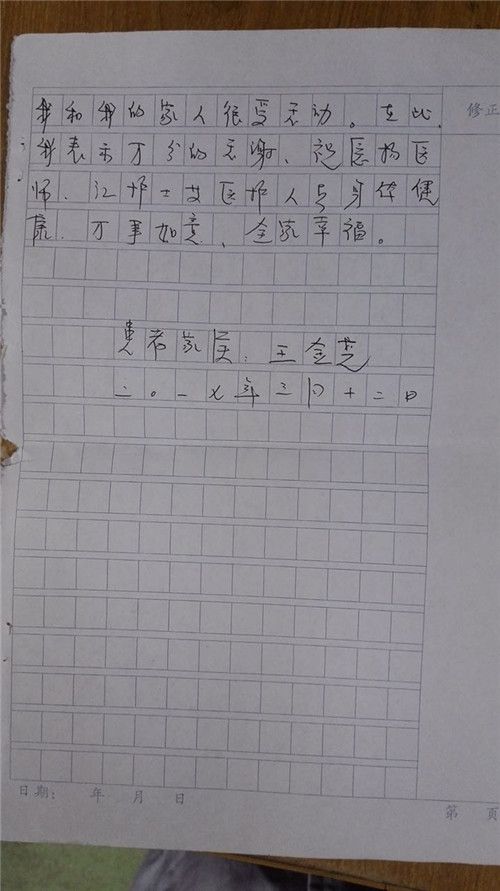 我和我的家人很受感动。在此,
修正
我表示万分的感谢、祝愿杨医
师、江护士及医护人员身体健
康、万事如意、全家幸福。
患者家属:王金
二〇一七年三月十二日
日期: 年 月 日
第 页